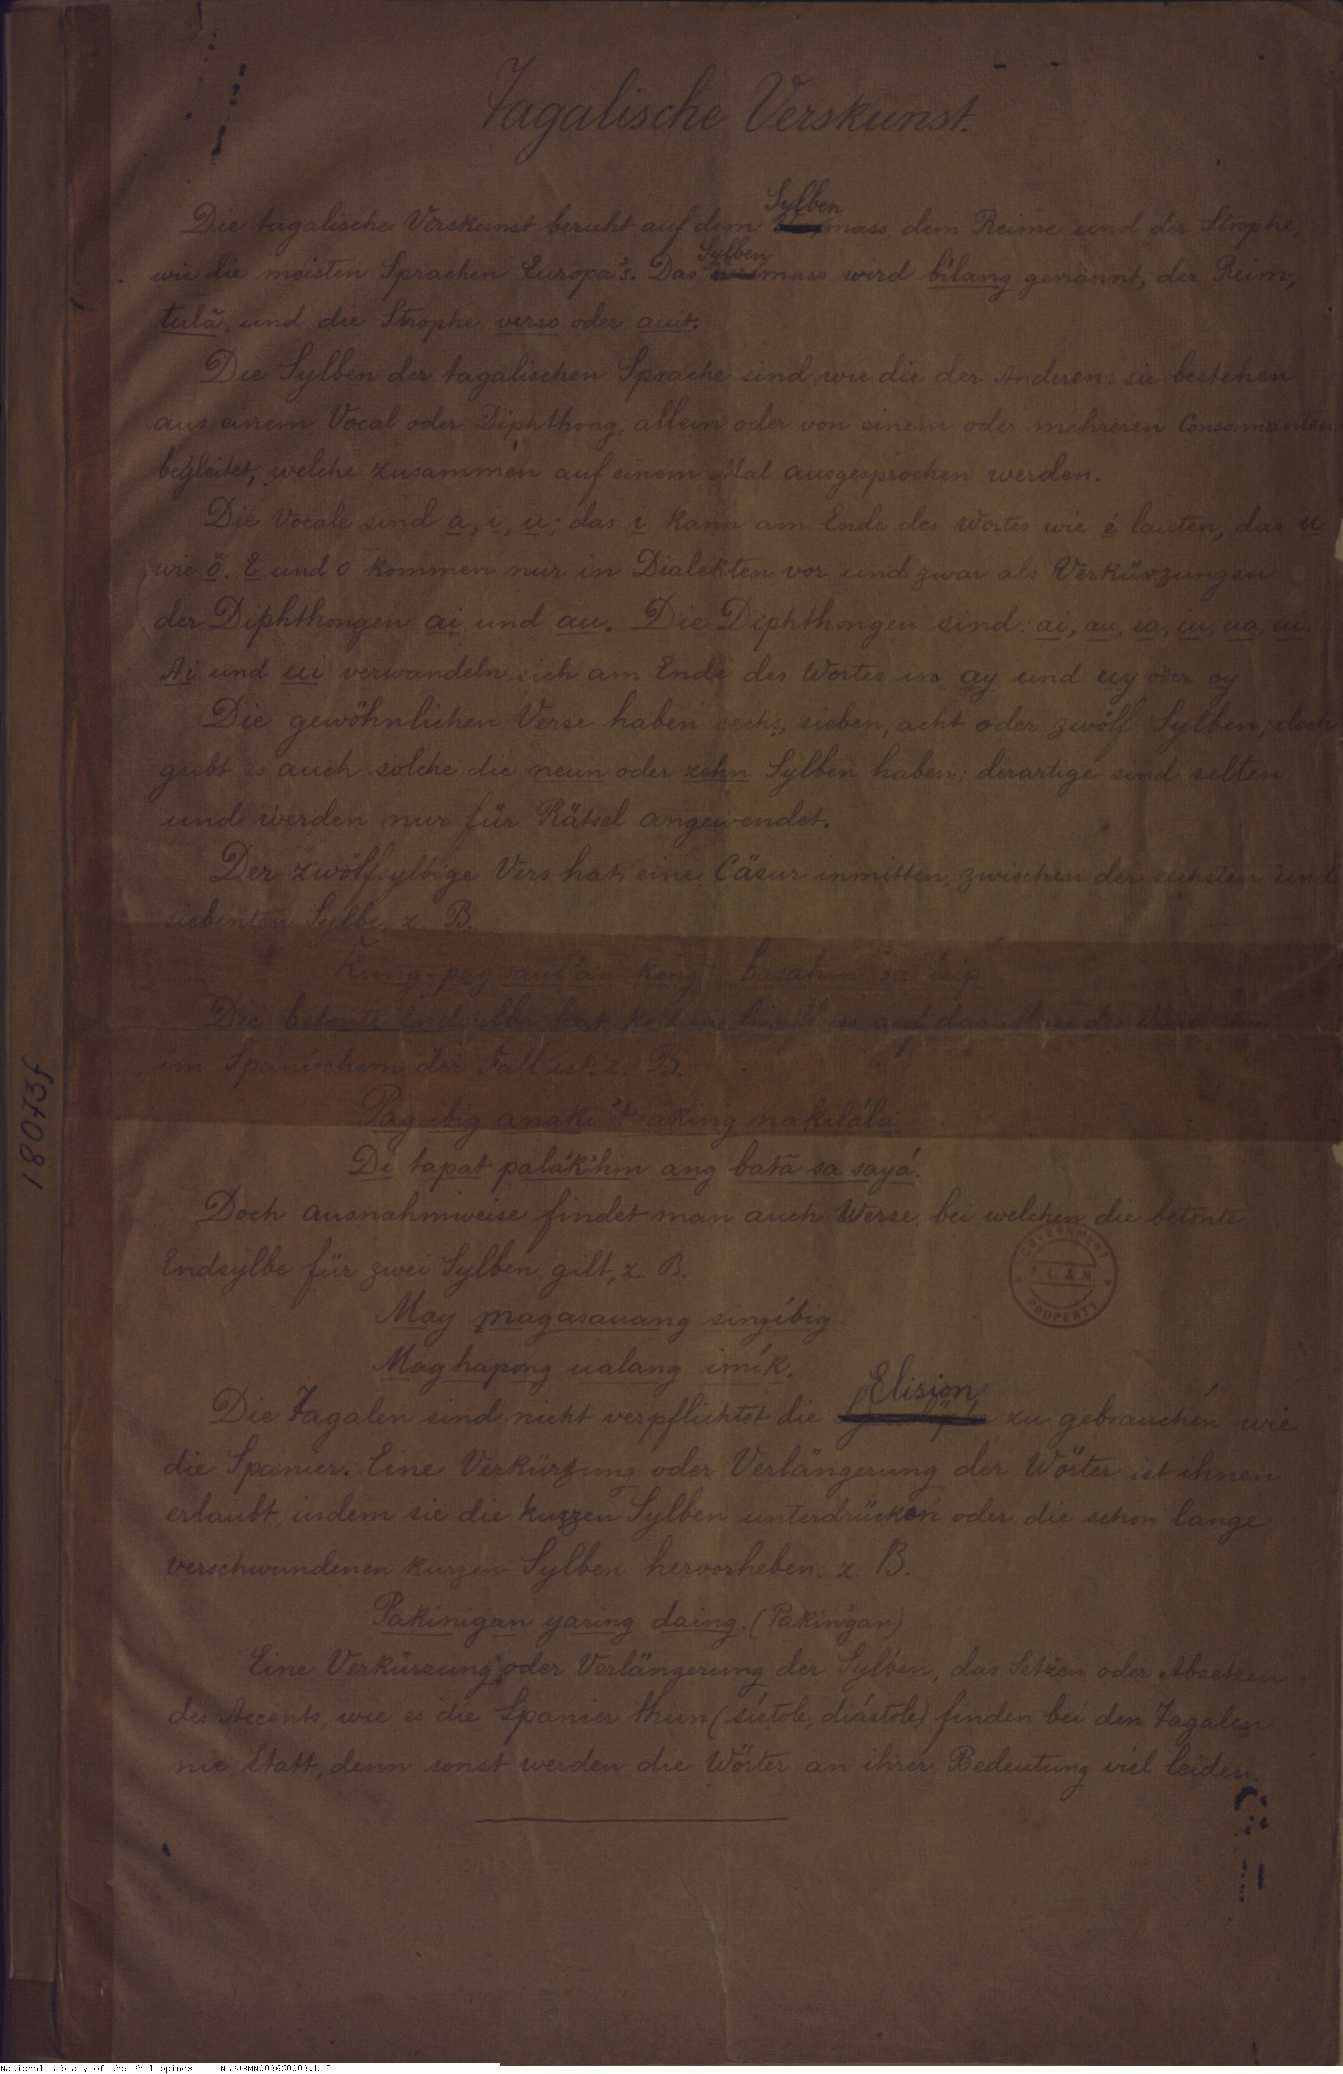 Tagalische Verskunst.
Die tagalische Verskunst beruht auf dem Sylbenmass, dem Reime und der Strophe,
wie die meisten Sprachen Europa's. Das Sylbenmass wird bilang genannt, der Reim,
tulâ, und die Strophe verso oder auit.
Die Sylben der tagalischen Sprache sind wie die der Anderen: sie bestehen
aus einem Vocal oder Diphthong, allein oder von einem oder mehreren Consonanten
begleitet, welche zusammen auf einem Mal ausgesprochen werden.
Die Vocale sind a, i, u; das i kann am Ende des Wortes wie é lauten, das u
wie ô. E und o kommen nur in Dialekten vor und zwar als Verkürzungen
der Diphthongen ai und au. Die Diphthongen sind: ai, au, ia, iu, ua, ui.
Ai und ui verwandeln sich am Ende des Wortes in ay und uy oder oy
Die gewöhnlichen Verse haben sechs, sieben, acht oder zwölf Sylben, doch
giebt es auch solche die neun oder zehn Sylben haben; derartige sind selten
und werden nur für Rätsel angewendet.
Der zwölfsylbige Vers hat eine Cäsur inmitten, zwischen der sechsten und
siebenten Sylbe, z. B.
Kung pag sauláan kong basahin sa isip
Die betonte Endsylbe hat keinen Einfluss auf das
im Spanischem der Fall ist z. B.
Pag ibig anaki't aking nakilála
Di tapat palákihin ang batâ sa sayá.
Doch ausnahmweise findet man auch Verse, bei welchen die betonte
Endsylbe für zwei Sylben gilt, z. B.
May magasauang singíbig
Maghapong ualang imík.
Die Tagalen sind nicht verpflichtet die Elision zu gebrauchen wie
die Spanier. Eine Verkürzung oder Verlängerung der Wörter ist ihnen
erlaubt, indem sie die kurzen Sylben unterdrücken oder die schon lange
verschwundenen kurzen Sylben hervorheben z. B.
Pakinigan yaring daing. (Pakin̄gan)
Eine Verkürzung oder Verlängerung der Sylben, das Setzen oder Absetzen
des Accents, wie es die Spanier thun (sístole, diástole) finden bei den Tagalen
nie Statt, denn sonst werden die Wörter an ihrer Bedeutung viel leiden.
GOVERNMENT
P L & M
PROPERTY
18073f
National Library of the Philippines